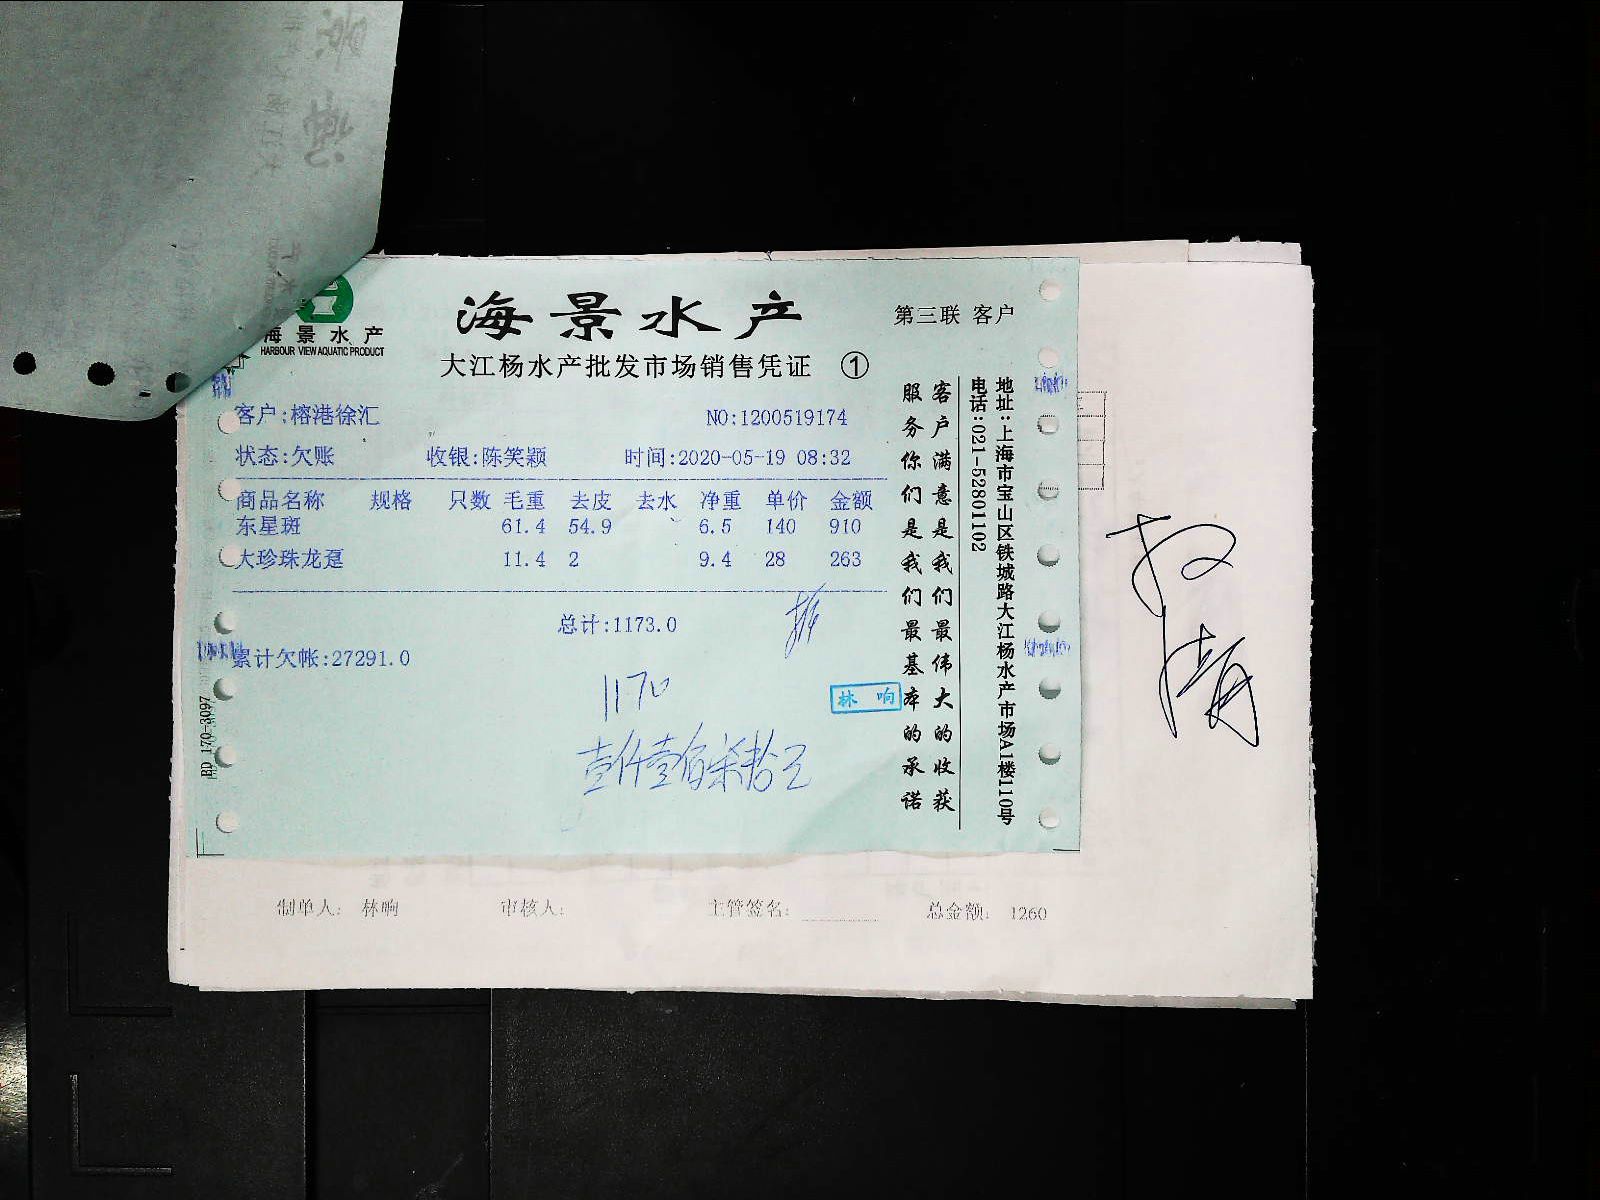 海景水产
HARBOUR VIEW AQUATIC PRODUCT
海景水产
第三联 客户
大江杨水产批发市场销售凭证 ①
客户:榕港徐汇
NO:1200519174
状态:欠账 收银:陈笑颖 时间:2020-05-19 08:32
商品名称 规格 只数 毛重 去皮 去水 净重 单价 金额
东星斑 61.4 54.9 6.5 140 910
大珍珠龙趸 11.4 2 9.4 28 263
总计:1173.0
累计欠帐:27291.0
1170
壹仟壹佰柒拾元
林响
客户满意是我们最伟大的收获
服务你们是我们最基本的承诺
地址:上海市宝山区铁城路大江杨水产市场A1楼110号
电话:021-52801102
制单人: 林响 审核人: 主管签名: 总金额: 1260